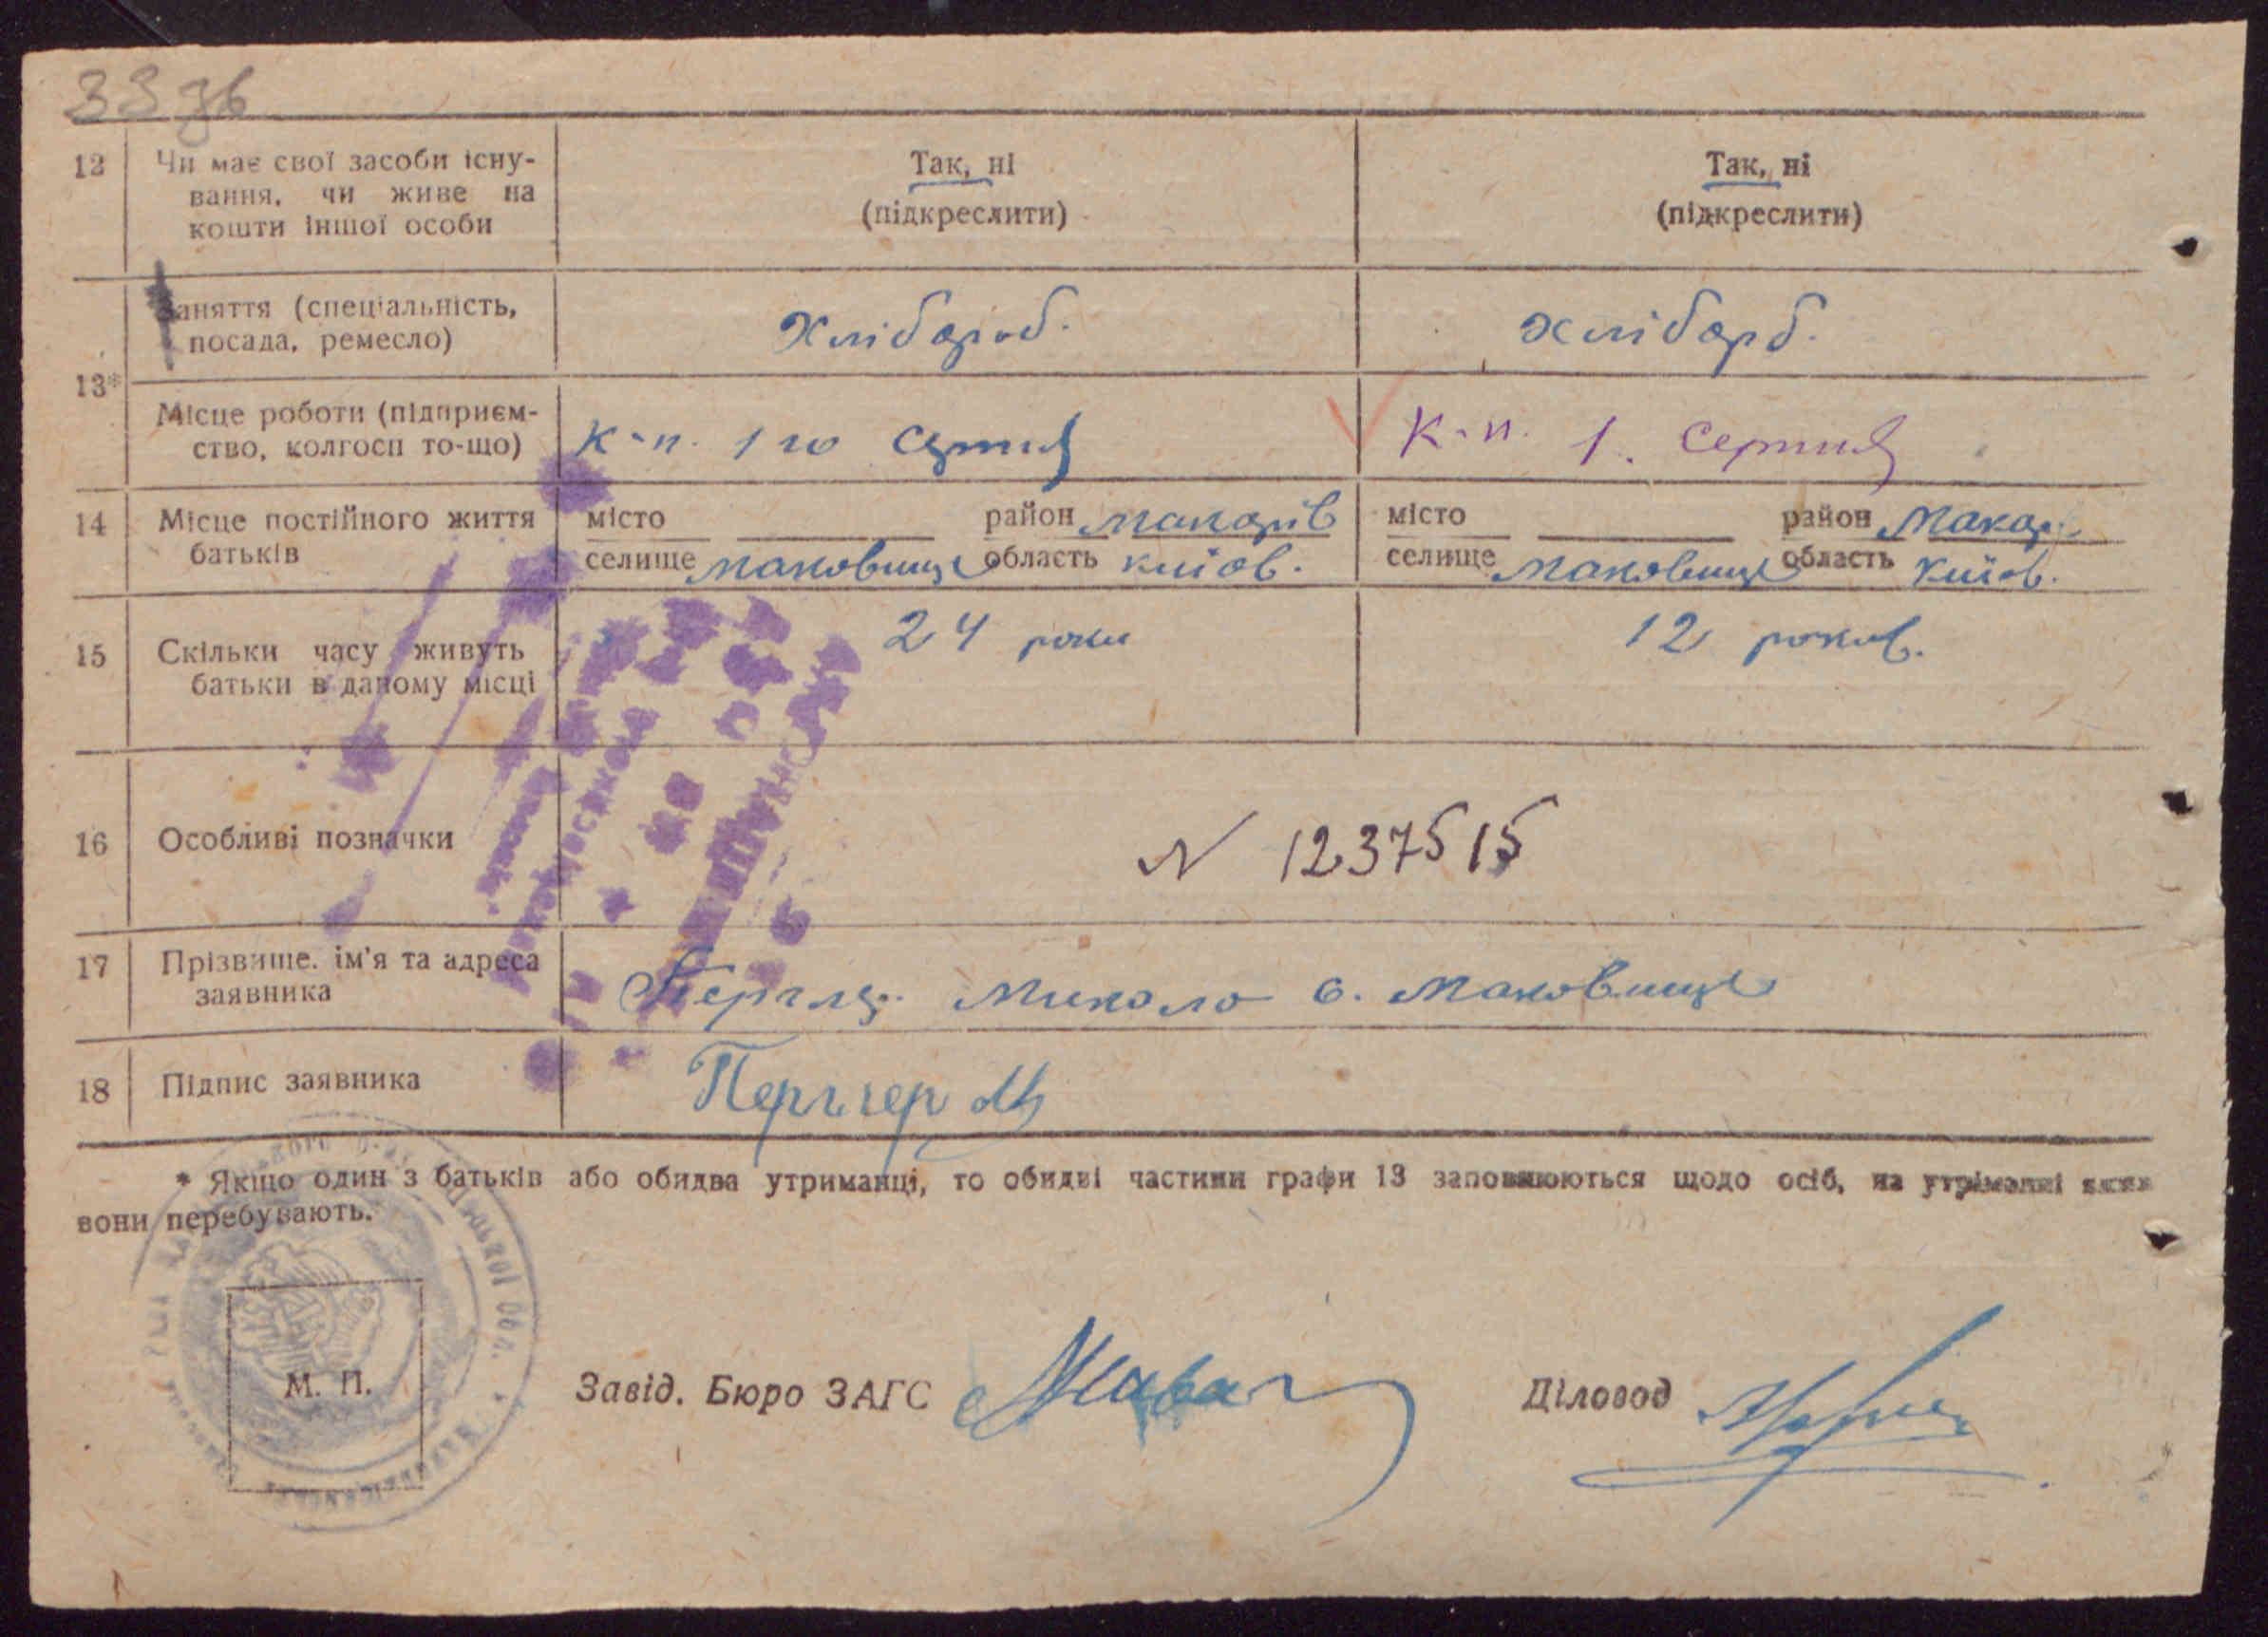 33 зв
12 Чи має свої засоби існу-
вання, чи живе на
кошти іншої особи
Так, ні
(підкреслити)
Так, ні
(підкреслити)
13*
Заняття (спеціальність,
посада, ремесло)
Хлібороб.
Хлібороб.
Місце роботи (підприєм-
ство, колгосп то-що)
К-п. 1 го Серпня
К-п. 1. Серпня
14 Місце постійного життя
батьків
місто район Макарів
селище Маковище область Київ.
місто район Макар.
селище Маковище область Київ.
15 Скільки часу живуть
батьки в даному місці
24 роки
12 років.
16 Особливі позначки
N 1237515
17 Прізвище, ім'я та адреса
заявника
Микола с. Маковище
18 Підпис заявника
* Якщо один з батьків або обидва утриманці, то обидві частини графи 13 заповнюються щодо осіб, на утриманні яких
вони перебувають.
М. П.
Завід. Бюро ЗАГС
Діловод